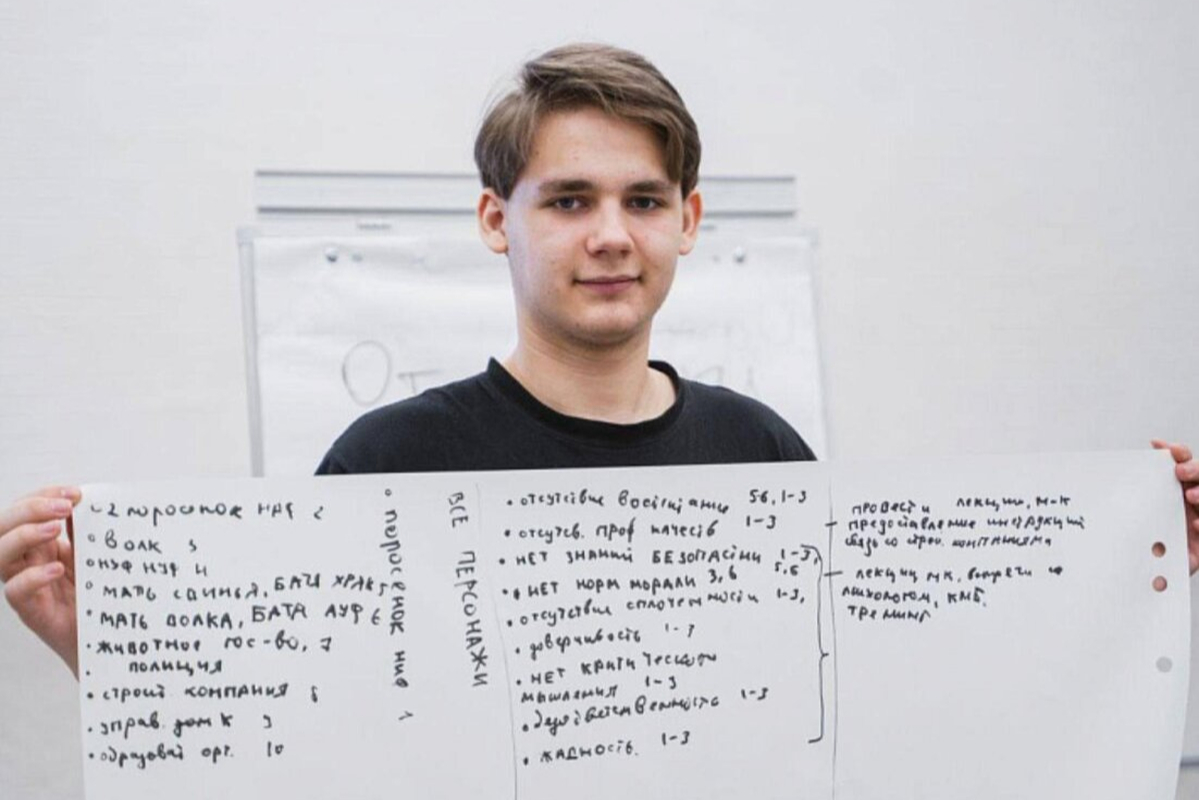 От
2 поросенок НАФ 2
• ВОЛК 3
• НУФ НУФ 4
• МАТЬ СВИНЬЯ, БАТЯ ХРЯК 5
• МАТЬ ВОЛКА, БАТЯ АУФ 6
• ЖИВОТНОЕ ГОС-ВО, 7
• ПОЛИЦИЯ
• СТРОИТ. КОМПАНИЯ 8
• УПРАВ. ДОМ К 9
• образоват орг. 10
• ПОРОСЕНОК НИФ 1
ВСЕ ПЕРСОНАЖИ
• отсутствие воспитание 56, 1-3
• отсутсв. проф качеств 1-3
• НЕТ ЗНАНИЙ БЕЗОПАСНИ 1-3,
• НЕТ НОРМ МОРАЛИ 3, 6 5,6
• отсутствие сплоченности 1-3,
• доверчивость 1-3
• НЕТ КРИТИЧЕСКОГО
МЫШЛЕНИЯ 1-3
• безответственность 1-3
• ЖАДНОСТЬ. 1-3
ПРОВЕСТИ ЛЕКЦИИ, М-К
предоставление инструкций
связь со строй. компаниями
ЛЕКЦИИ МК, встречи с
психологом, КМБ,
ТРЕНИНГ